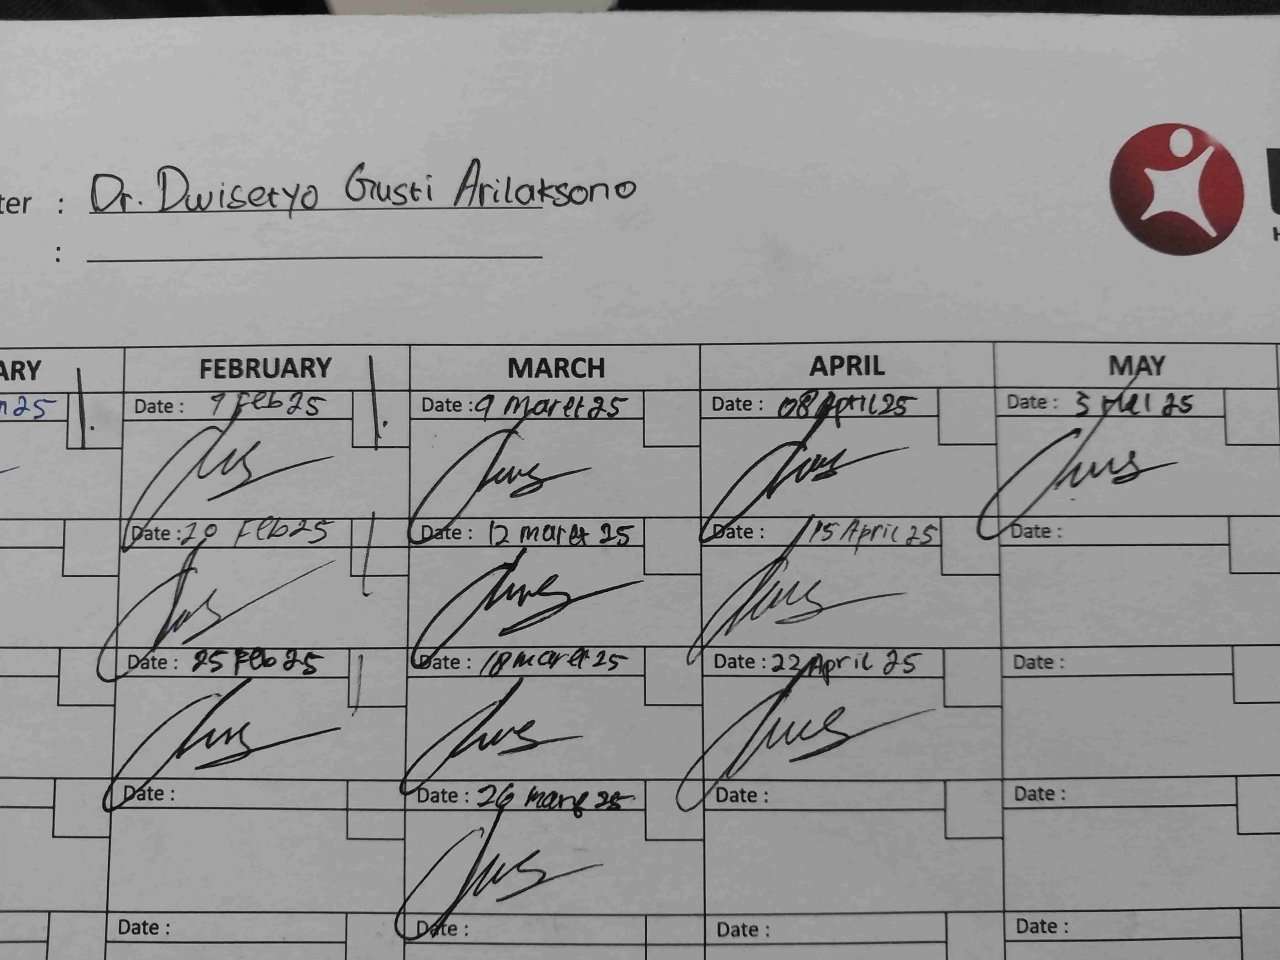 ter : Dr. Dwisetyo Gusti Arilaksono
:
ARY FEBRUARY MARCH APRIL MAY
n25 Date : 9 Feb 25 Date : 9 Maret 25 Date : 08 April 25 Date : 3 Mei 25
Date : 20 Feb 25 Date : 12 maret 25 Date : 15 April 25 Date :
Date : 25 Feb 25 Date : 18 maret 25 Date : 22 April 25 Date :
Date : Date : 26 maret 25 Date : Date :
Date : Date : Date : Date :